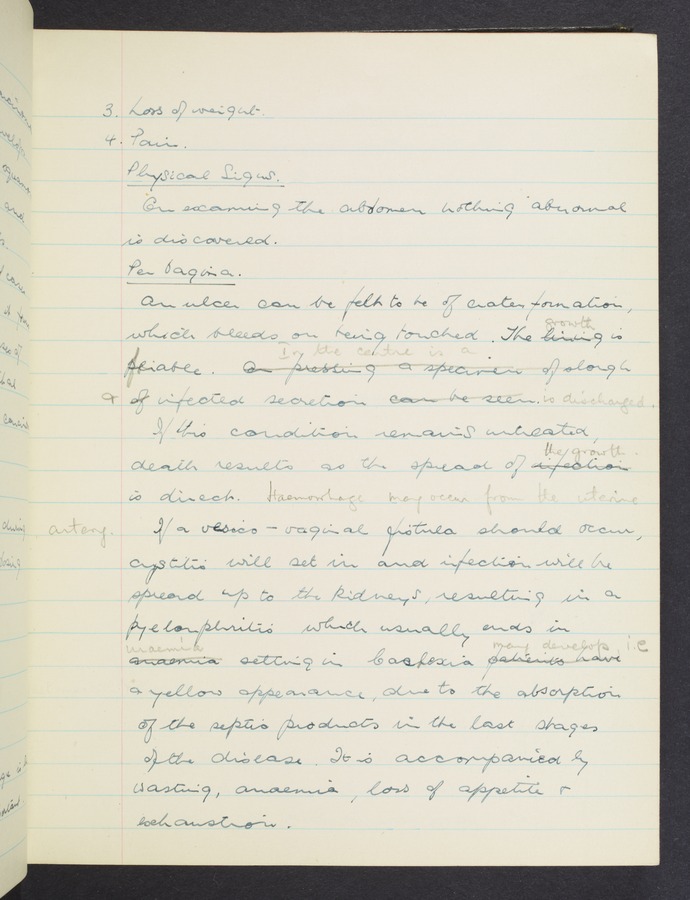 3. Loss of weight.
4. Pain.
Physical Signs.
On examining the abdomen nothing abnormal
is discovered.
Per Vagina.
An ulcer can be felt to be of crater formation,
growth
which bleeds on being touched. The lining is
In the centre is a
friable. On pressing a specimen of slough
& of infected secretion can be seen. is discharged.
If this condition remains untreated,
the growth.
death results as the spread of infection
is direct. Haemorrhage may occur from the uterine
artery. If a vesico-vaginal fistula should occur,
cystitis will set in and infection will be
spread up to the kidneys, resulting in a
pyelonphritis which usually ends in
uraemia may develop, i.e
anaemia setting in Cachexia patients have
a yellow appearance, due to the absorption
of the septic products in the last stages
of the disease. It is accompanied by
wasting, anaemia, loss of appetite &
exhaustion.